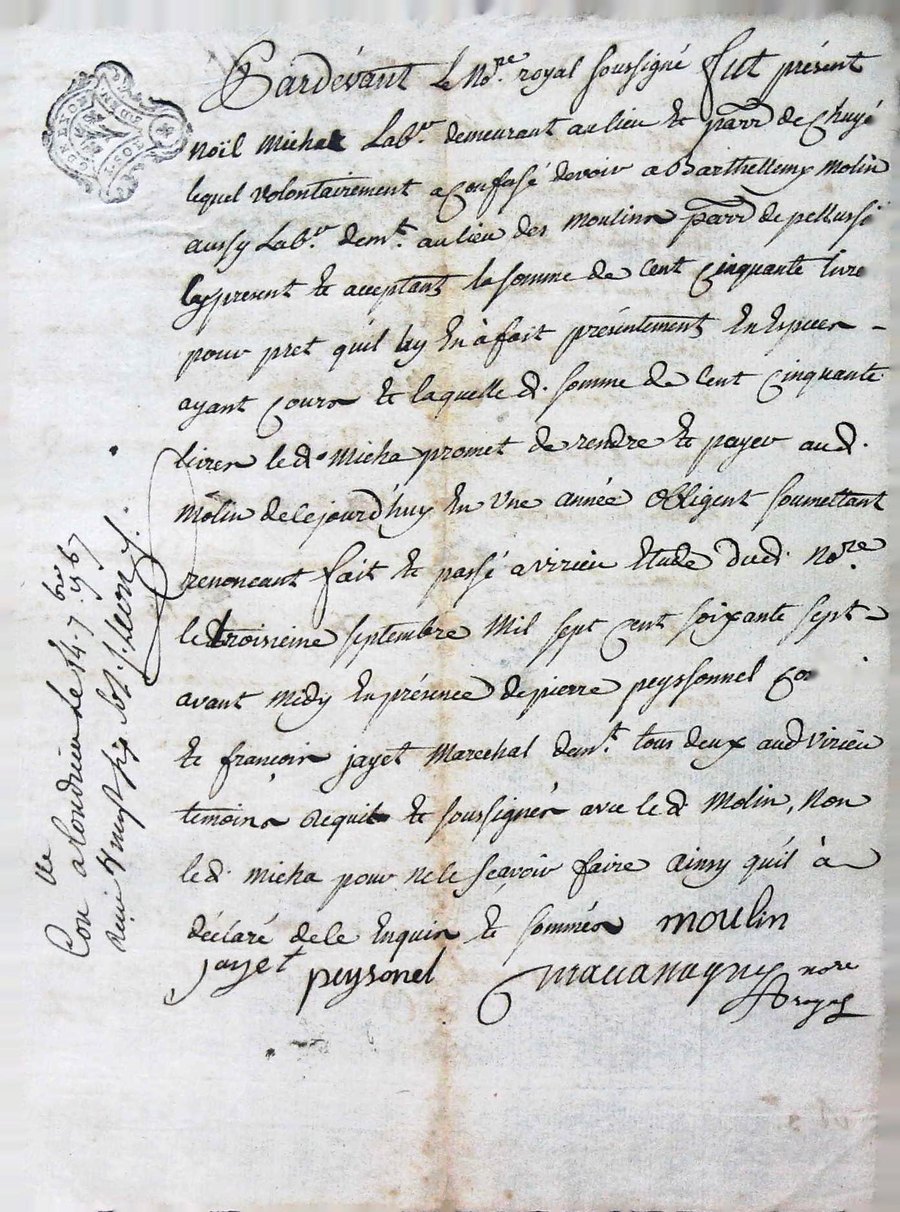 Pardevant le No.re royal soussigné fut présent
noël micha Lab.r demeurant au lieu & parr de Chuyé
lequel volontairement a confessé devoir a Barthellemy molin
aussy Lab.r dem.t au lieu des moulins parr de pellussi
ley present & acceptant la somme de Cent cinquante livre
pour pret qu'il luy En à fait présentement En Especes -
ayant cours & laquelle d. somme de Cent cinquante
livres le d. Micha promet de rendre & payer aud.
molin de ce jourd'huy En Une année obligent soumettant
renoncant fait & passé a virieu Etude dud. No.re
le troisieme septembre Mil sept cent soixante sept -
avant midy En présence de pierre peyssonnel
& francois jayet Marechal dem.t tous deux aud virieu
temoins requis & soussignés avec le d. Molin, Non
le d. micha pour ne le scavoir faire ainsy qu'il à
déclaré de ce Enquis & sommés moulin
jayet peysonel nore
royal
Con.lle a Condrieu le 14. 7.bre 1767